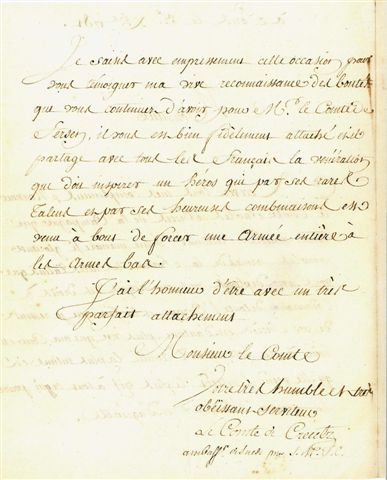 Je saisis avec empressement cette occasion pour
vous témoigner ma vive reconnaissance des bontés
que vous continuez d'avoir pour Mr. le Comte de
Fersen, il vous est bien fidelement attaché et il
partage avec tous les Français la vénération
que doit inspirer un héros qui par ses rares
talens et par ses heureuses combinaisons est
venu à bout de forcer une Armée entière à
les Armes bas.
J'ai l'honneur d'être avec un très
parfait attachement
Monsieur le Comte
Votre très humble et très
obéissant serviteur
Le Comte de Creutz